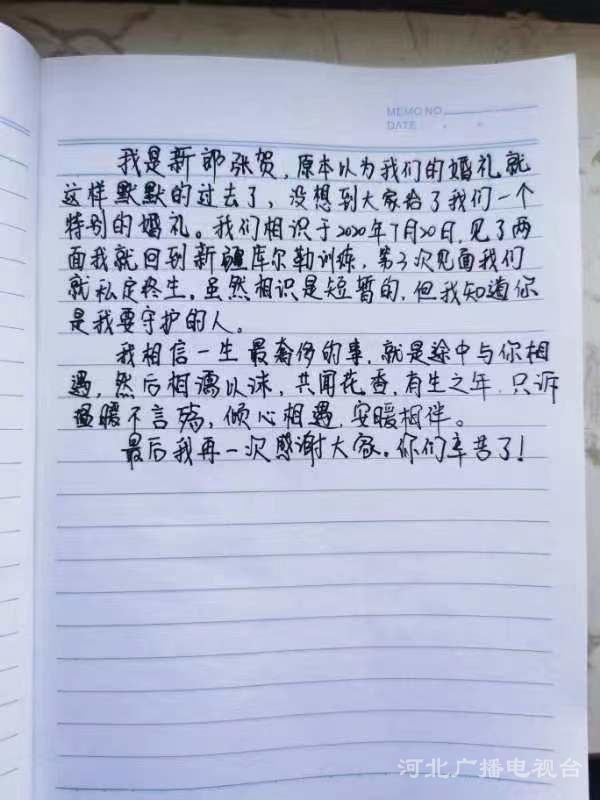 MEMO NO.
DATE
我是新郎张贺，原本以为我们的婚礼就
这样默默的过去了，没想到大家给了我们一个
特别的婚礼。我们相识于2020年7月20日，见了两
面我就回到新疆库尔勒训练，第3次见面我们
就私定终生。虽然相识是短暂的，但我知道你
是我要守护的人。
我相信一生最奢侈的事，就是途中与你相
遇，然后相濡以沫，共闻花香，有生之年，只诉
温暖不言殇，倾心相遇，安暖相伴。
最后我再一次感谢大家。你们辛苦了！
河北广播电视台